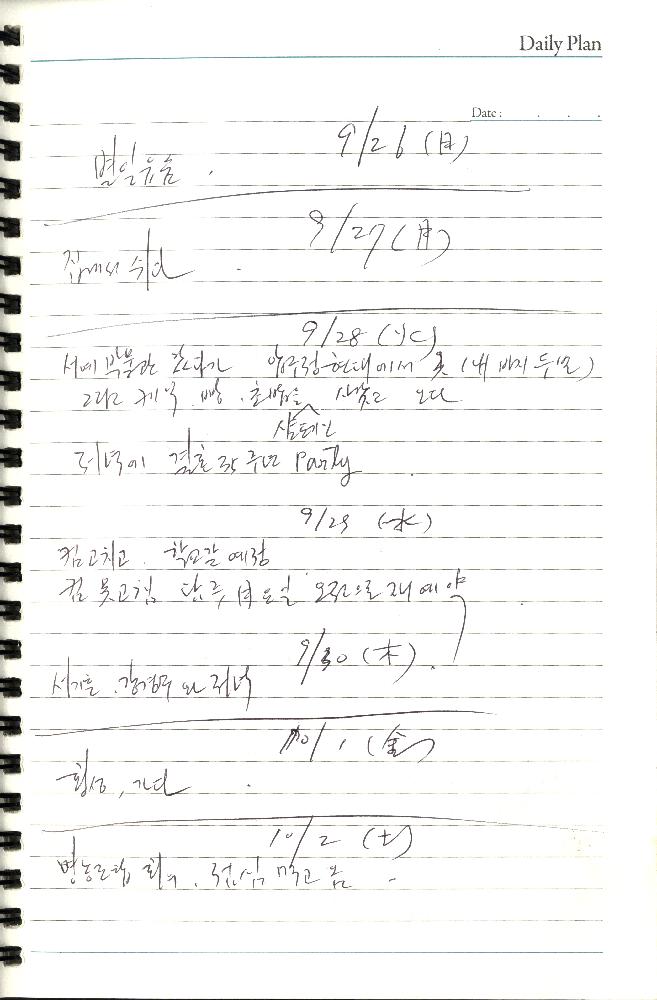 Daily Plan
Date : . . .
9/26 (日)
별일 없음 .
9/27 (月)
집에서 쉬다 .
9/28 (火)
서예 박물관 갔다가 압구정 현대에서 옷 (내 바지 두벌)
그리고 케익 . 빵 . 초밥을 사갖고 오다
저녁에 결혼 주년 Party .
9/29 (水)
컴 고치고 . 학교갈 예정
컴 못고침 담주 月요일 오전으로 재예약
9/30 (木) .
와 저녁
10/1 (金)
횡성 , 가다 .
10/2 (土)
회의 . 점심 먹고 옴 .